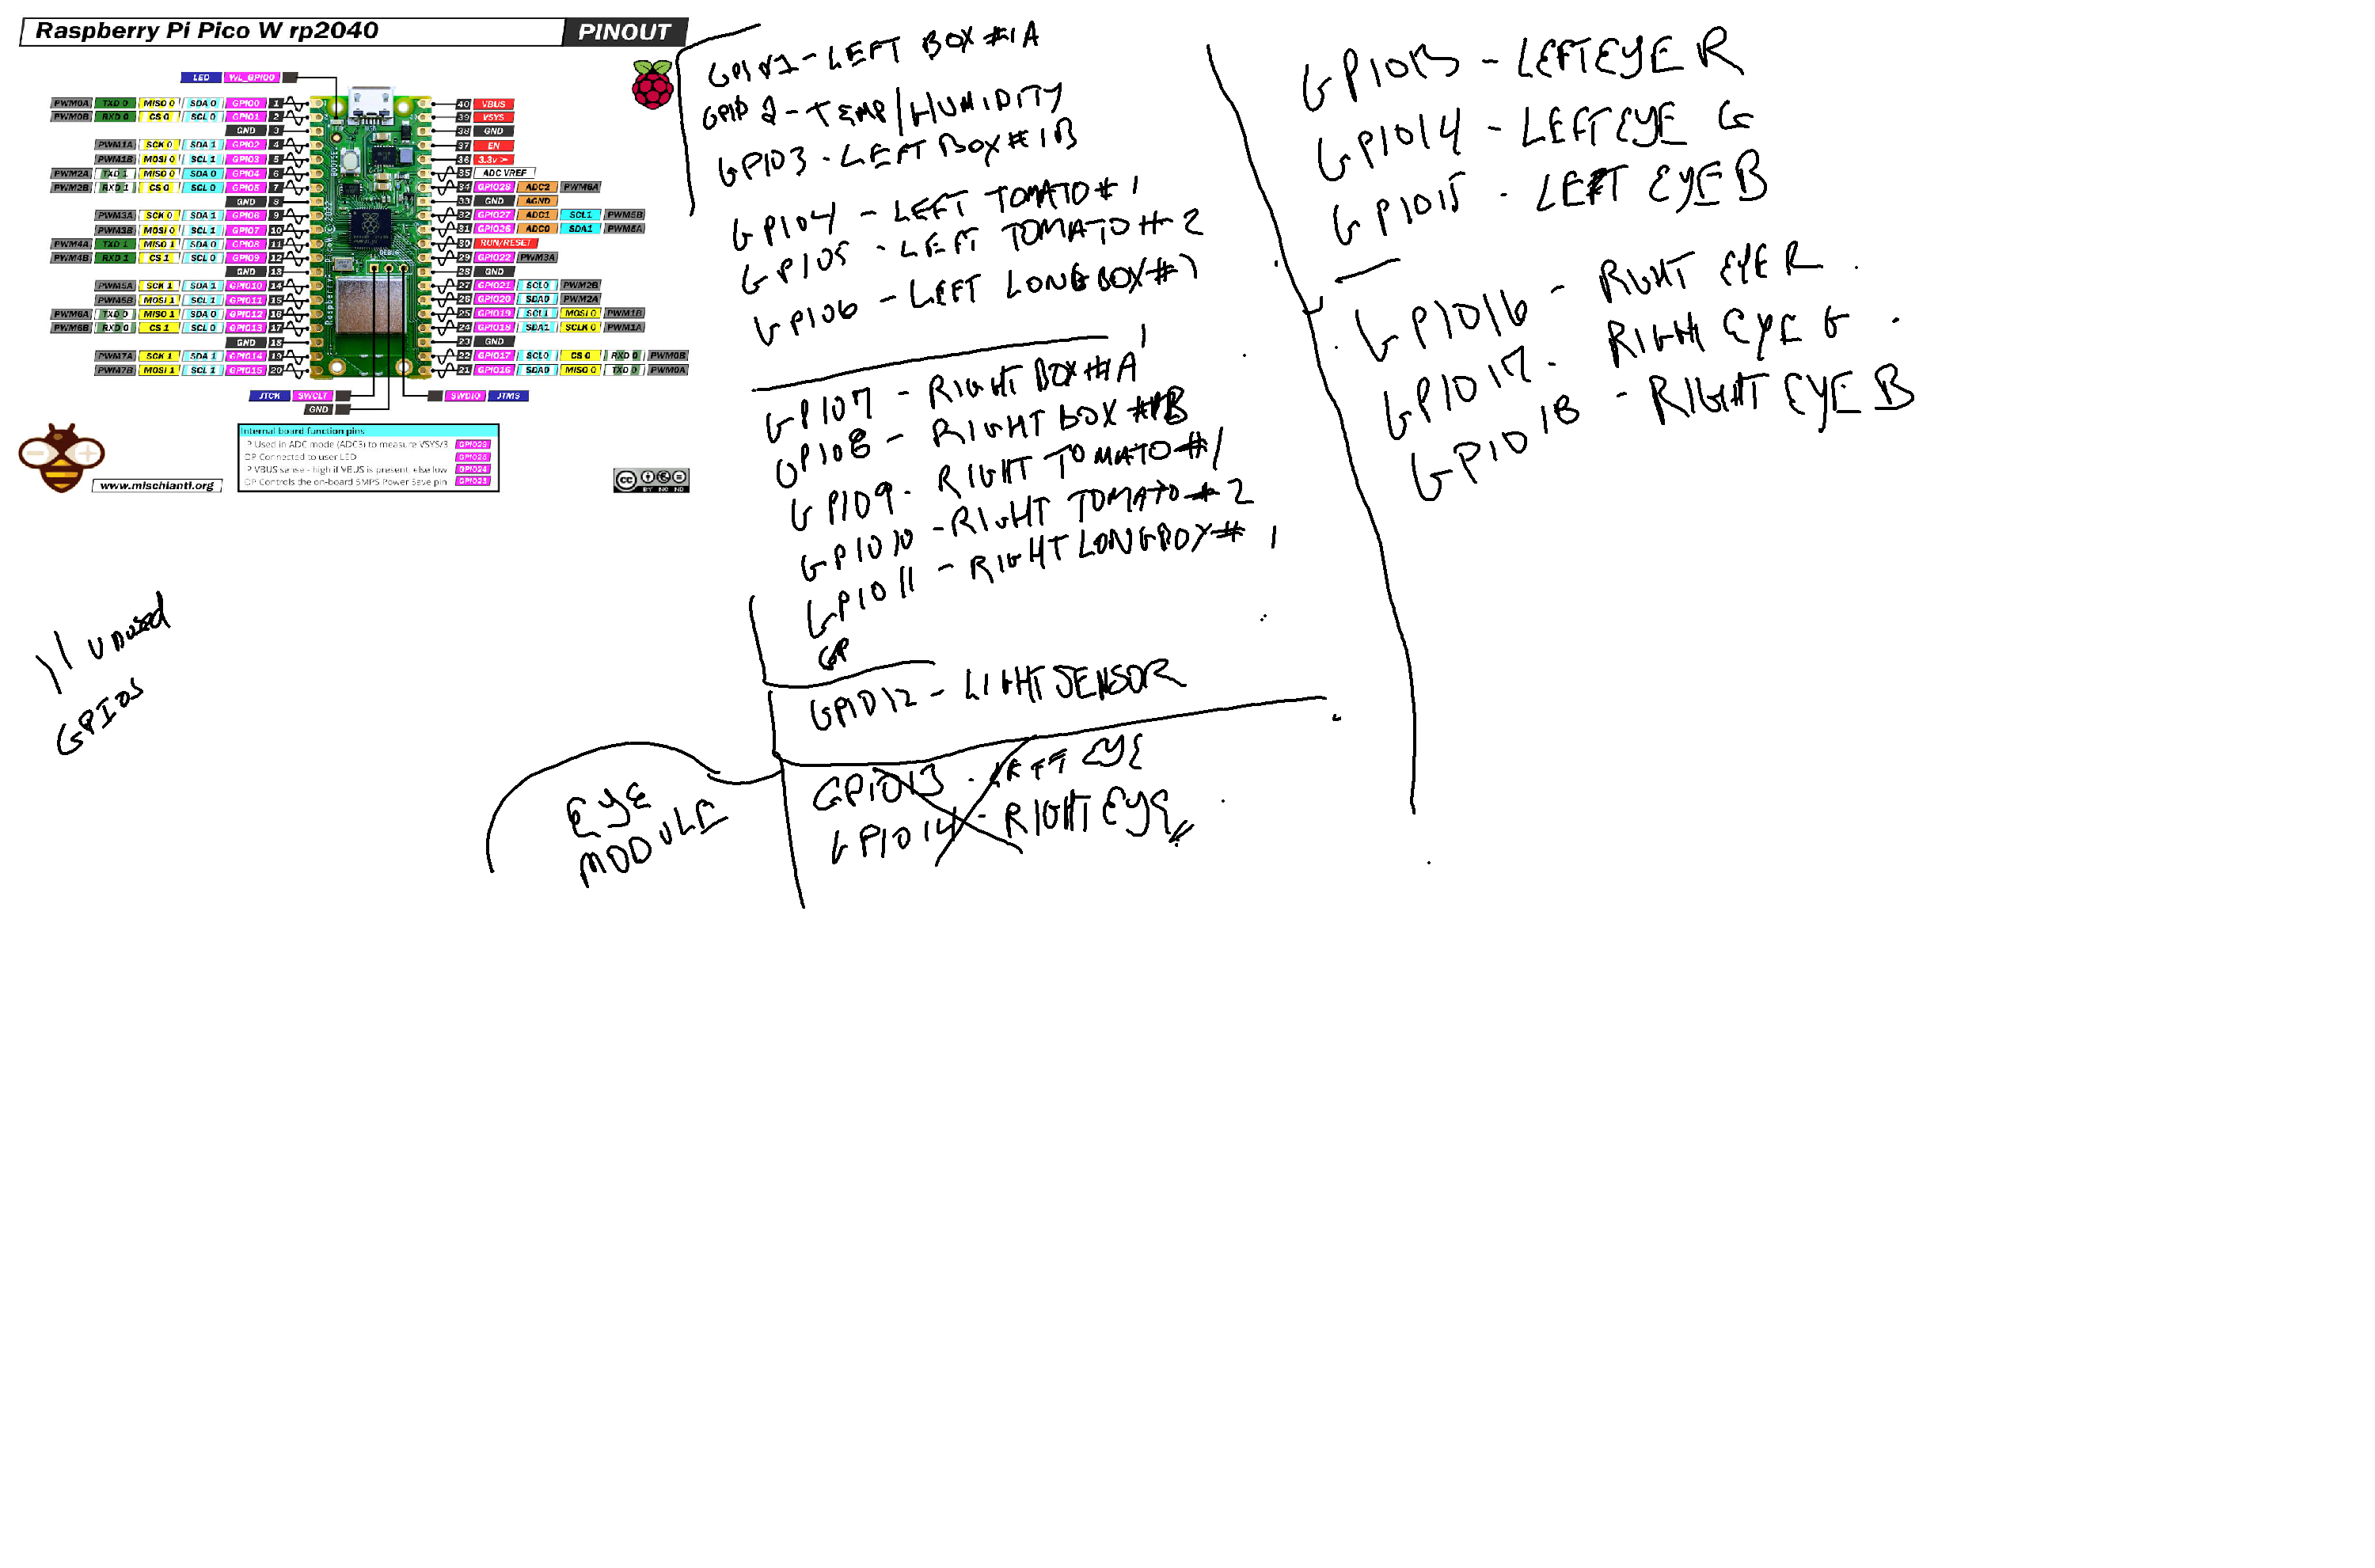 Raspberry Pi Pico W rp2040
PINOUT
LED WL_GPIO0
PWM0A TXD 0 MISO 0 SDA 0 GPIO0 1
PWM0B RXD 0 CS 0 SCL 0 GPIO1 2
GND 3
PWM1A SCK 0 SDA 1 GPIO2 4
PWM1B MOSI 0 SCL 1 GPIO3 5
PWM2A TXD 1 MISO 0 SDA 0 GPIO4 6
PWM2B RXD 1 CS 0 SCL 0 GPIO5 7
GND 8
PWM3A SCK 0 SDA 1 GPIO6 9
PWM3B MOSI 0 SCL 1 GPIO7 10
PWM4A TXD 1 MISO 1 SDA 0 GPIO8 11
PWM4B RXD 1 CS 1 SCL 0 GPIO9 12
GND 13
PWM5A SCK 1 SDA 1 GPIO10 14
PWM5B MOSI 1 SCL 1 GPIO11 15
PWM6A TXD 0 MISO 1 SDA 0 GPIO12 16
PWM6B RXD 0 CS 1 SCL 0 GPIO13 17
GND 18
PWM7A SCK 1 SDA 1 GPIO14 19
PWM7B MOSI 1 SCL 1 GPIO15 20
40 VBUS
39 VSYS
38 GND
37 EN
36 3.3v >
35 ADC VREF
34 GPIO28 ADC2 PWM6A
33 GND AGND
32 GPIO27 ADC1 SCL1 PWM5B
31 GPIO26 ADC0 SDA1 PWM5A
30 RUN/RESET
29 GPIO22 PWM3A
28 GND
27 GPIO21 SCL0 PWM2B
26 GPIO20 SDA0 PWM2A
25 GPIO19 SCL1 MOSI 0 PWM1B
24 GPIO18 SDA1 SCLK 0 PWM1A
23 GND
22 GPIO17 SCL0 CS 0 RXD 0 PWM0B
21 GPIO16 SDA0 MISO 0 TXD 0 PWM0A
JTCK SWCLT
GND
SWDIO JTMS
Internal board function pins
IP Used in ADC mode (ADC3) to measure VSYS/3 GPIO29
OP Connected to user LED GPIO25
IP VBUS sense - high if VBUS is present, else low GPIO24
OP Controls the on-board SMPS Power Save pin GPIO23
www.mischianti.org
CC BY NC ND
GPIO1 - LEFT BOX #1A
GPIO 2 - TEMP/HUMIDITY
GPIO3 - LEFT BOX #1B
GPIO4 - LEFT TOMATO # 1
GPIO5 - LEFT TOMATO # 2
GPIO6 - LEFT LONGBOX #1
GPIO7 - RIGHT BOX #1A
GPIO8 - RIGHT BOX #1B
GPIO9 - RIGHT TOMATO #1
GPIO10 - RIGHT TOMATO # 2
GPIO11 - RIGHT LONGBOX # 1
GP
GPIO12 - LIGHT SENSOR
GPIO13 - LEFT EYE
GPIO14 - RIGHT EYE
EYE
MODULE
11 unused
GPIOs
GPIO13 - LEFT EYE R
GPIO14 - LEFT EYE G
GPIO15 - LEFT EYE B
GPIO16 - RIGHT EYE R
GPIO17 - RIGHT EYE G
GPIO18 - RIGHT EYE B